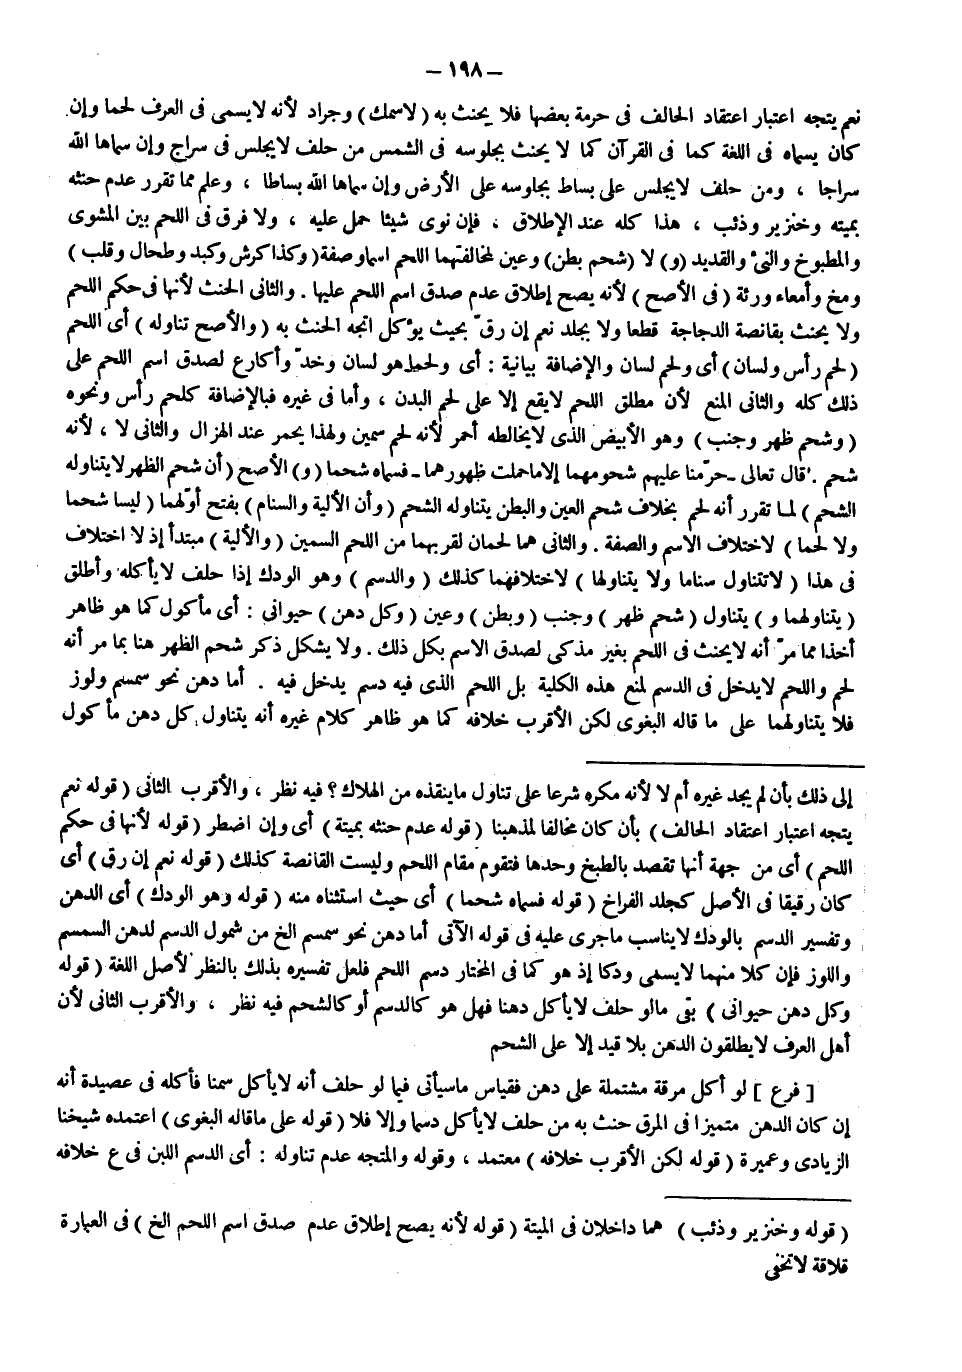 – ١٩٨ –
نعم يتجه اعتبار اعتقاد الحالف فى حرمة بعضها فلا يحنث به ( لاسمك ) وجراد لأنه لايسمى فى العرف لحما وإن
كان يسماه فى اللغة كما فى القرآن كما لا يحنث بجلوسه فى الشمس من حلف لايجلس فى سراج وإن سماها الله
سراجا ، ومن حلف لايجلس على بساط بجلوسه على الأرض وإن سماها الله بساطا ، وعلم مما تقرر عدم حنثه
بميته وخنزير وذئب ، هذا كله عند الإطلاق ، فإن نوى شيئا حمل عليه ، ولا فرق فى اللحم بين المشوى
والمطبوخ والنىء والقديد (و) لا (شحم بطن) وعين لمخالفتهما اللحم اسما وصفة ( وكذا كرش وكبد وطحال وقلب )
ومخ وأمعاء ورئة ( فى الأصح ) لأنه يصح إطلاق عدم صدق اسم اللحم عليها . والثانى الحنث لأنها فى حكم اللحم
ولا يحنث بقانصة الدجاجة قطعا ولا بجلد نعم إن رقّ بحيث يؤكل اتجه الحنث به ( والأصح تناوله ) أى اللحم
( لحم رأس ولسان ) أى ولحم لسان والإضافة بيانية : أى ولحما هو لسان وخدّ وأكارع لصدق اسم اللحم على
ذلك كله والثانى المنع لأن مطلق اللحم لايقع إلا على لحم البدن ، وأما فى غيره فبالإضافة كلحم رأس ونحوه
( وشحم ظهر وجنب ) وهو الأبيض الذى لايخالطه أحمر لأنه لحم سمين ولهذا يحمر عند الهزال والثانى لا ، لأنه
شحم . قال تعالى ـ حرّمنا عليهم شحومهما إلا ماحملت ظهورهما ـ فسماه شحما ( و) الأصح ( أن شحم الظهر لايتناوله
الشحم ) لما تقرر أنه لحم بخلاف شحم العين والبطن يتناوله الشحم ( وأن الألية والسنام ) بفتح أوّلهما ( ليسا شحما
ولا لحما ) لاختلاف الاسم والصفة . والثانى هما لحمان لقربهما من اللحم السمين ( والألية ) مبتدأ إذ لا اختلاف
فى هذا ( لاتتناول سناما ولا يتناولها ) لاختلافهما كذلك ( والدسم ) وهو الودك إذا حلف لايأكله وأطلق
( يتناولهما و ) يتناول ( شحم ظهر ) وجنب ( وبطن ) وعين ( وكل دهن ) حيوانى : أى مأكول كما هو ظاهر
أخذا مما مرّ أنه لايحنث فى اللحم بغير مذكى لصدق الاسم بكل ذلك . ولا يشكل ذكر شحم الظهر هنا بما مر أنه
لحم واللحم لايدخل فى الدسم لمنع هذه الكلية بل اللحم الذى فيه دسم يدخل فيه . أما دهن نحو سمسم ولوز
فلا يتناولهما على ما قاله البغوى لكن الأقرب خلافه كما هو ظاهر كلام غيره أنه يتناول كل دهن مأكول
إلى ذلك بأن لم يجد غيره أم لا لأنه مكره شرعا على تناول ماينقذه من الهلاك ؟ فيه نظر ، والأقرب الثانى ( قوله نعم
يتجه اعتبار اعتقاد الحالف ) بأن كان مخالفا لمذهبنا ( قوله عدم حنثه بميتة ) أى وإن اضطر ( قوله لأنها فى حكم
اللحم ) أى من جهة أنها تقصد بالطبخ وحدها فتقوم مقام اللحم وليست القانصة كذلك ( قوله نعم إن رق ) أى
كان رقيقا فى الأصل كجلد الفراخ ( قوله فسماه شحما ) أى حيث استثناه منه ( قوله وهو الودك ) أى الدهن
وتفسير الدسم بالودك لايناسب ماجرى عليه فى قوله الآتى أما دهن نحو سمسم الخ من شمول الدسم لدهن السمسم
واللوز فإن كلا منهما لايسمى ودكا إذ هو كما فى المختار دسم اللحم فلعل تفسيره بذلك بالنظر لأصل اللغة ( قوله
وكل دهن حيوانى ) بقى مالو حلف لايأكل دهنا فهل هو كالدسم أو كالشحم فيه نظر ، والأقرب الثانى لأن
أهل العرف لايطلقون الدهن بلا قيد إلا على الشحم
[ فرع ] لو أكل مرقة مشتملة على دهن فقياس ماسيأتى فيما لو حلف أنه لايأكل سمنا فأكله فى عصيدة أنه
إن كان الدهن متميزا فى المرق حنث به من حلف لايأكل دسما وإلا فلا ( قوله على ماقاله البغوى ) اعتمده شيخنا
الزيادى وعميرة ( قوله لكن الأقرب خلافه ) معتمد ، وقوله والمتجه عدم تناوله : أى الدسم اللبن فى ع خلافه
( قوله وخنزير وذئب ) هما داخلان فى الميتة ( قوله لأنه يصح إطلاق عدم صدق اسم اللحم الخ ) فى العبارة
قلاقة لاتخفى